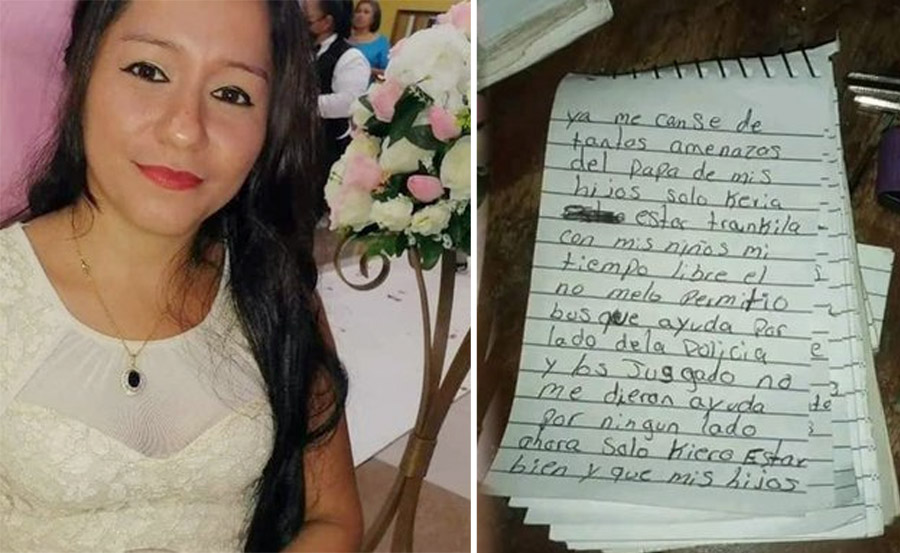 ya me canse de
tantas amenazas
del papa de mis
hijos solo keria
estar trankila
con mis niños mi
tiempo libre el
no melo permitio
busque ayuda por
lado dela policia
y los Juggado no
me dieron ayuda
por ningun lado
ahora solo kiero Estar
bien y que mis hijos